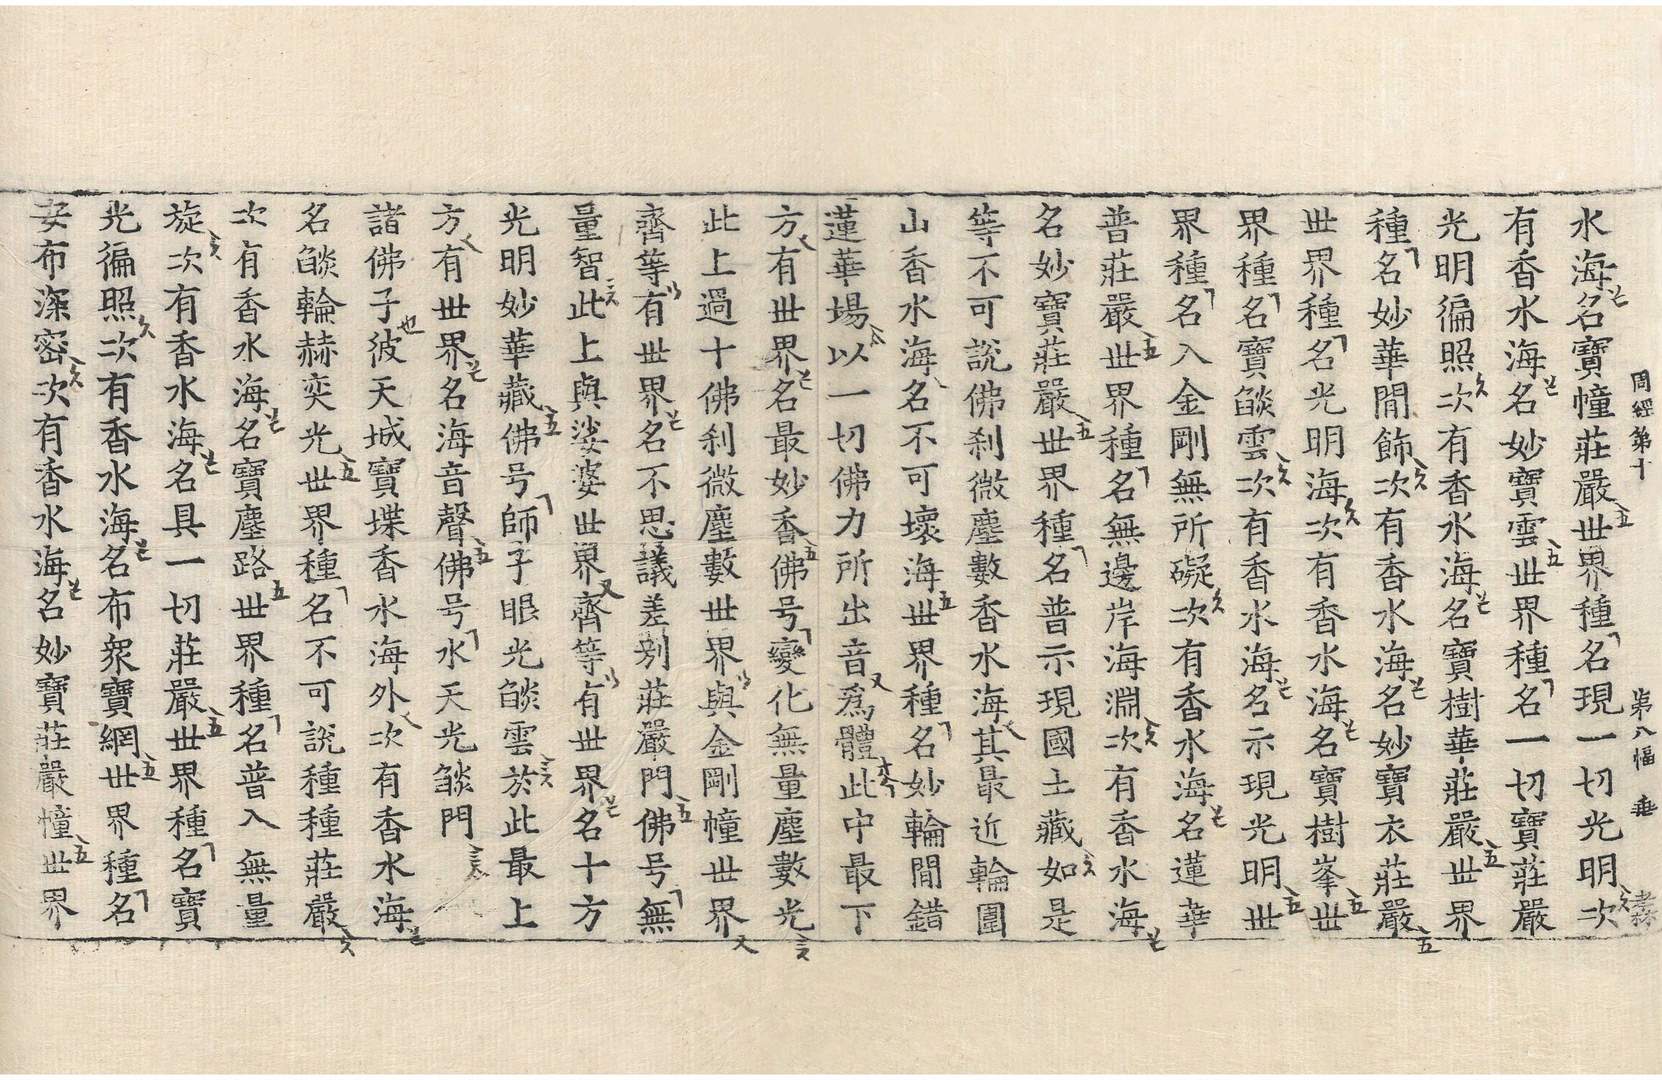 周經第十 第八幅 垂
水海名寶幢莊嚴世界種名現一切光明次
有香水海名妙寶雲世界種名一切寶莊嚴
光明徧照次有香水海名寶樹華莊嚴世界
種名妙華間飾次有香水海名妙寶衣莊嚴
世界種名光明海次有香水海名寶樹峯世
界種名寶𦦨雲次有香水海名示現光明世
界種名入金剛無所礙次有香水海名蓮華
普莊嚴世界種名無邊岸海淵次有香水海
名妙寶莊嚴世界種名普示現國土藏如是
等不可說佛刹微塵數香水海其最近輪圍
山香水海名不可壞海世界種名妙輪間錯
蓮華場以一切佛力所出音爲體此中最下
方有世界名最妙香佛号變化無量塵數光
此上過十佛刹微塵數世界與金剛幢世界
齊等有世界名不思議差别莊嚴門佛号無
量智此上與娑婆世界齊等有世界名十方
光明妙華藏佛号師子眼光𦦨雲於此最上
方有世界名海音聲佛号水天光𦦨門
諸佛子彼天城寶堞香水海外次有香水海
名𦦨輪赫奕光世界種名不可說種種莊嚴
次有香水海名寶塵路世界種名普入無量
旋次有香水海名具一切莊嚴世界種名寶
光徧照次有香水海名布衆寶網世界種名
安布深密次有香水海名妙寶莊嚴幢世界